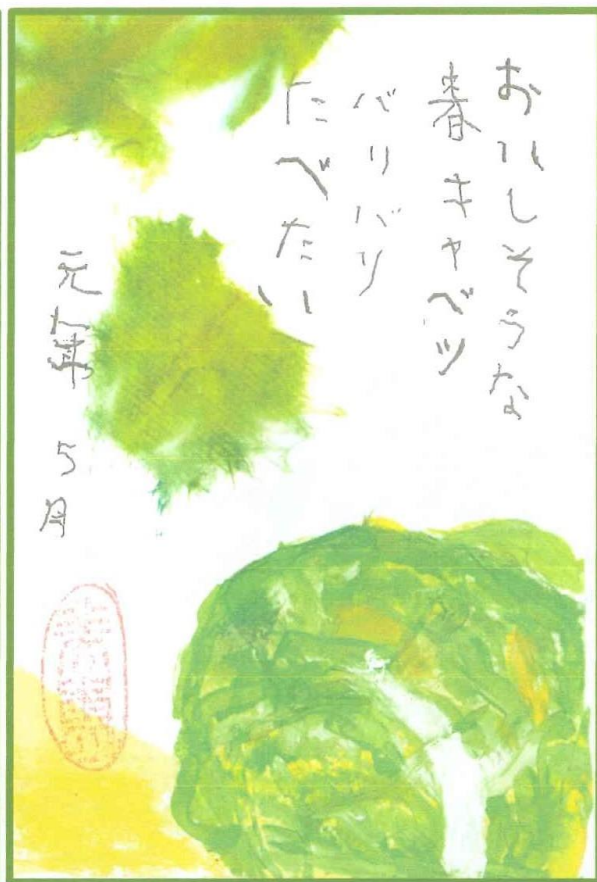 おいしそうな
春キャベツ
バリバリ
たべたい
元年 5月